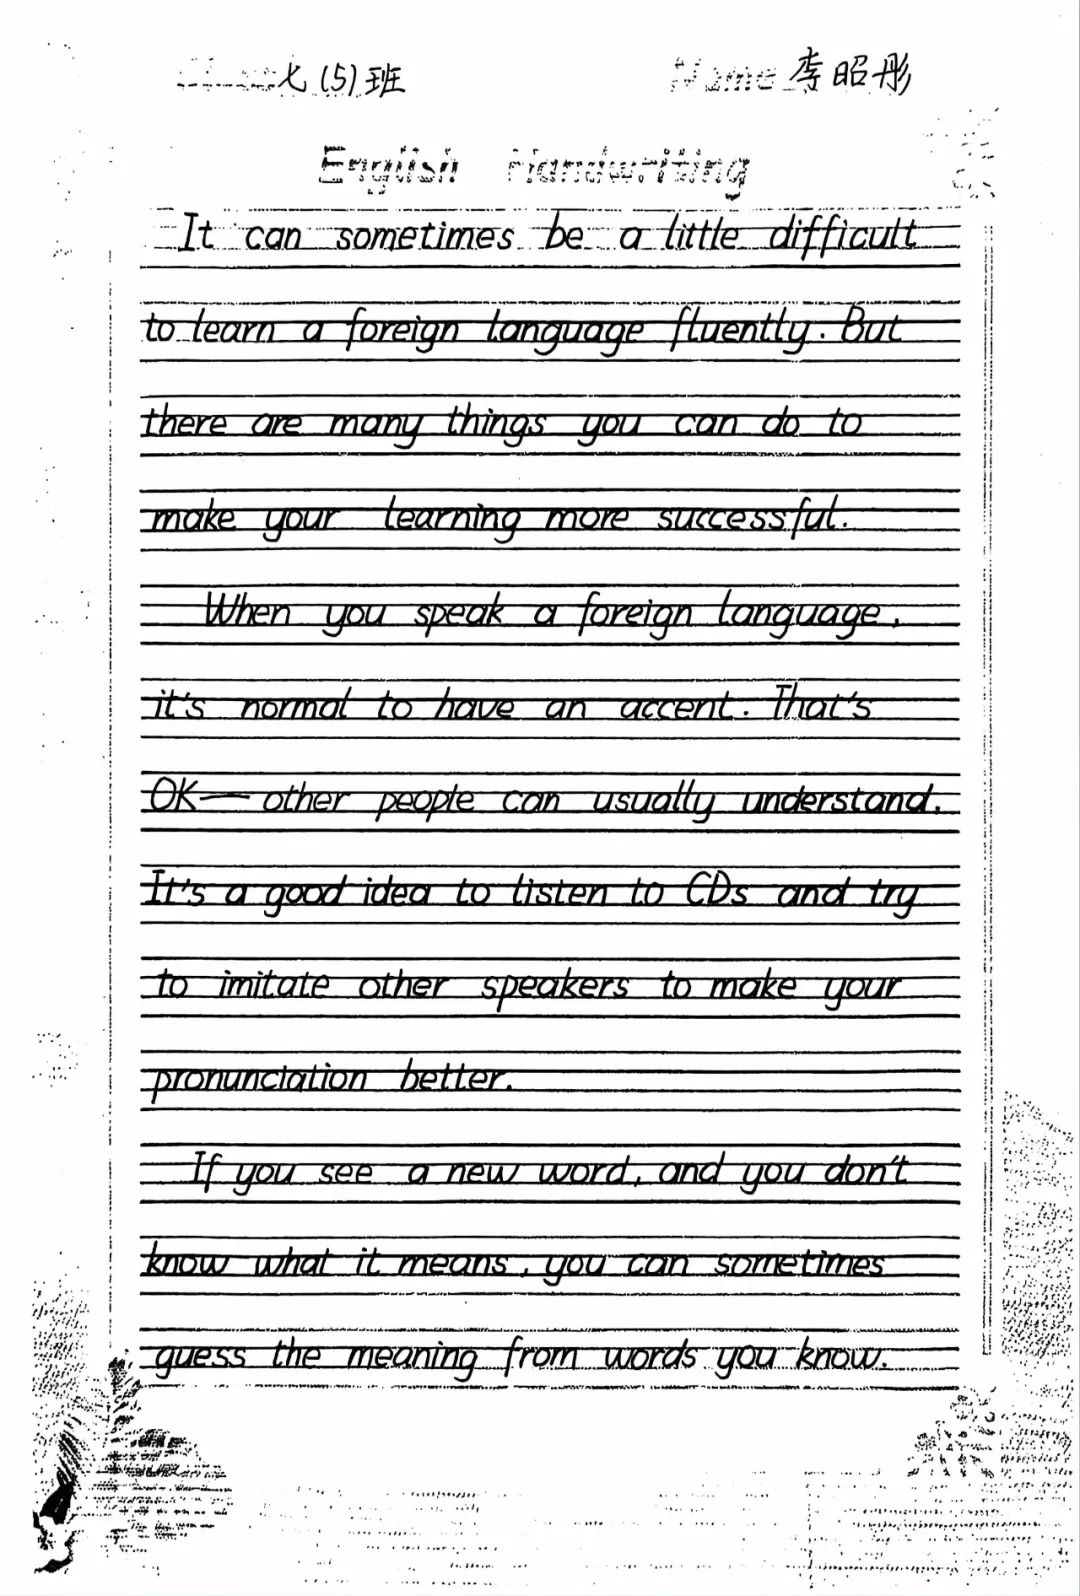 Class 七(5)班 Name 李昭彤
English Handwriting
It can sometimes be a little difficult
to learn a foreign language fluently. But
there are many things you can do to
make your learning more successful.
When you speak a foreign language,
it's normal to have an accent. That's
OK—other people can usually understand.
It's a good idea to listen to CDs and try
to imitate other speakers to make your
pronunciation better.
If you see a new word, and you don't
know what it means, you can sometimes
guess the meaning from words you know.